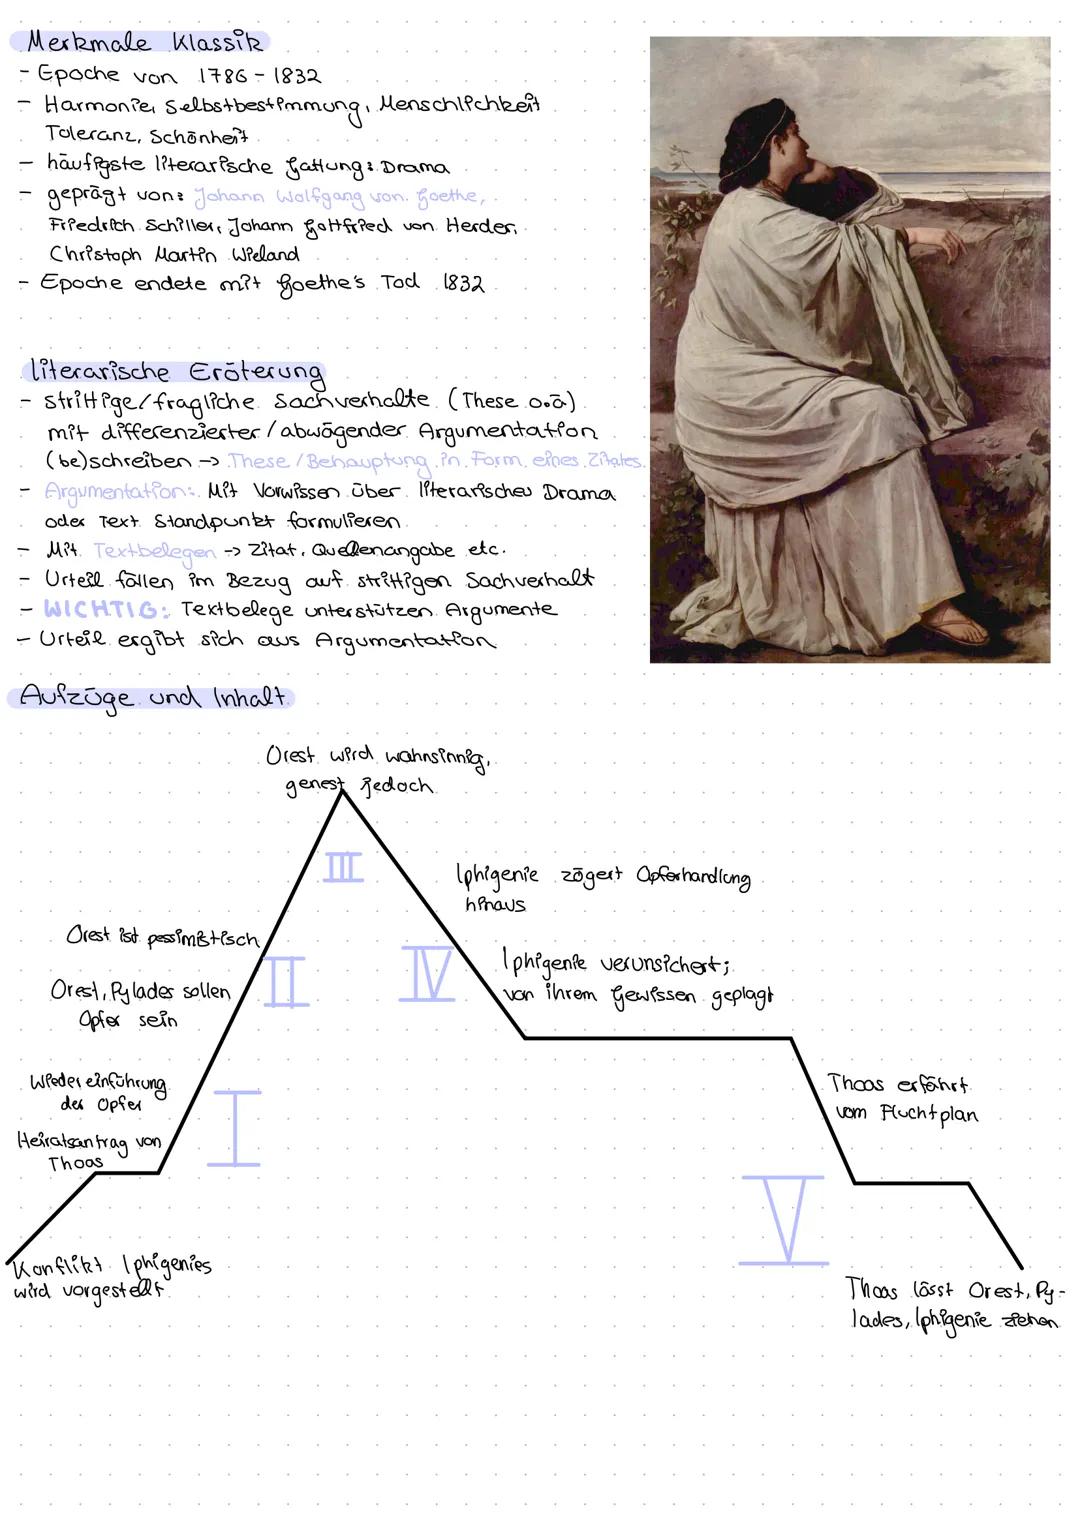 Merkmale Klassik
- Epoche von 1786 - 1832
- Harmonie, Selbstbestimmung, Menschlichkeit
Toleranz, Schönheit
- häufigste literarische Gattung: Drama
- geprägt von: Johann Wolfgang von Goethe,
Friedrich Schiller, Johann Gottfried von Herder,
Christoph Martin Wieland
- Epoche endete mit Goethe's Tod 1832
literarische Erörterung
- strittige/fragliche Sachverhalte (These o.ä)
mit differenzierter/abwägender Argumentation
(be)schreiben -> These/Behauptung in Form eines Zitates
- Argumentation: Mit Vorwissen über literarisches Drama
oder Text Standpunkt formulieren
- Mit Textbelegen -> Zitat, Quellenangabe etc.
- Urteil fällen im Bezug auf strittigen Sachverhalt
- WICHTIG: Textbelege unterstützen Argumente
- Urteil ergibt sich aus Argumentation
Aufzüge und Inhalt
Orest wird wahnsinnig,
genest jedoch
III
Iphigenie zögert Opferhandlung
hinaus
Orest ist pessimistisch
II
IV
Iphigenie verunsichert;
von ihrem Gewissen geplagt
Orest, Pylades sollen
Opfer sein
Wiedereinführung
der Opfer
I
Thoas erfährt
vom Fluchtplan
Heiratsantrag von
Thoas
V
Konflikt Iphigenies
wird vorgestellt
Thoas lässt Orest, Py-
lades, Iphigenie ziehen